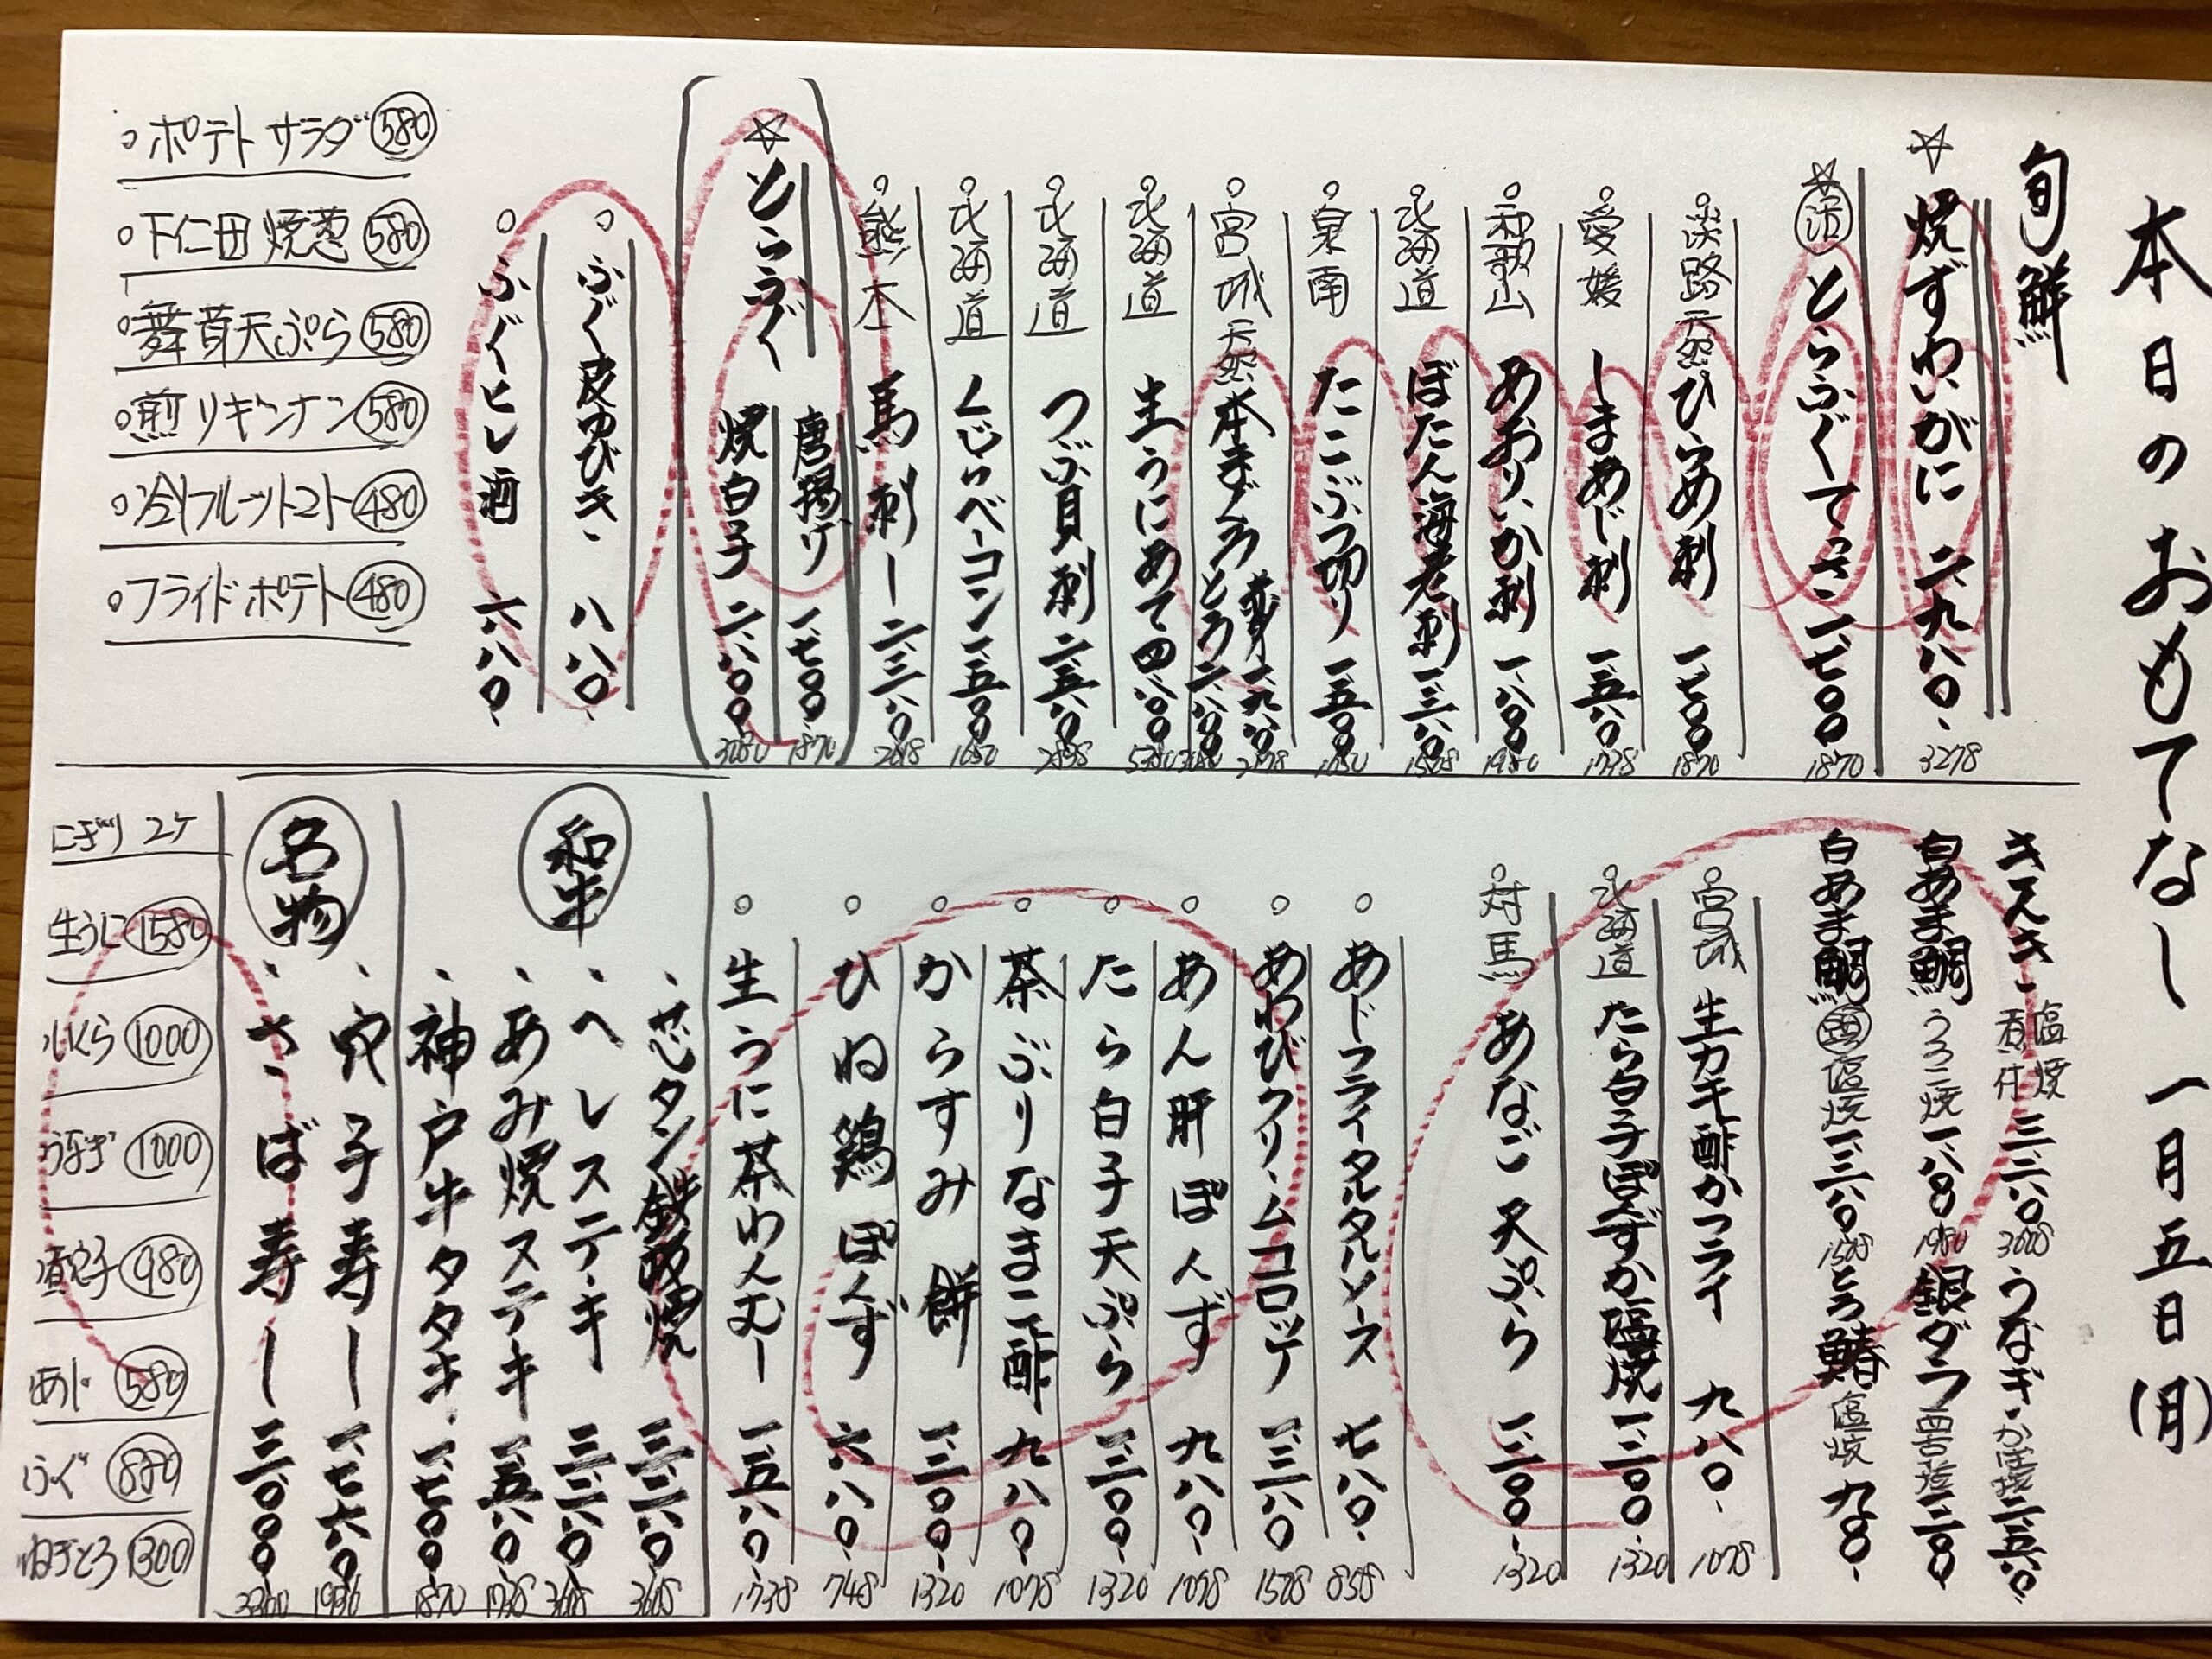 本日のおもてなし 一月五日(月)
旬鮮
☆焼ずわいがに 二、九八〇 3278
☆活とらふぐてっさ 一、七〇〇 1870
淡路 天然 ひらめ刺 一、七〇〇 1870
愛媛 しまあじ刺 一、五八〇 1738
和歌山 あおりいか刺 一、八〇〇 1980
北海道 ぼたん海老刺
泉南 たこぶつ切り 一、五〇〇 1650
宮城 天然 本まぐろ 赤身 一、九八〇 2178
とろ 二、八〇〇 3080
北海道 生うにあて 四、八〇〇 5280
北海道 つぶ貝刺 二、五八〇 2838
北海道 くじらベーコン 一、五〇〇 1650
熊本 馬刺し 二、三八〇 2618
☆とらふぐ 唐揚げ 一、七〇〇 1870
焼白子 二、八〇〇 3080
ふぐ皮ゆびき 八八〇
ふぐヒレ酒 六八〇
ポテトサラダ 580
下仁田焼葱 580
舞茸天ぷら 580
煎りギンナン 580
冷やしフルーツトマト 480
フライドポテト 480
キンキ 塩焼 煮付
うなぎ かば焼 二、五八〇
白あま鯛 うろこ焼 一、八〇〇 1980
銀ダラ 西京焼
白あま鯛 塩焼 一、三八〇 1518
とろ鯖 塩焼 九八〇
宮城 生カキ酢かフライ 九八〇 1078
北海道 たら白子ぽんずか塩焼 一、二〇〇 1320
対馬 あなご天ぷら 一、二〇〇 1320
あじフライタルタルソース 七八〇 858
あわびクリームコロッケ 一、三八〇
あん肝ぽんず 九八〇 1078
たら白子天ぷら 一、二〇〇 1320
茶ぶりなまこ酢 九八〇 1078
からすみ餅 一、二〇〇 1320
ひね鶏ぽんず 六八〇 748
生うに茶わんむし 一、五八〇 1738
和牛
芯タン鉄板焼
ヘレステーキ
あみ焼ステーキ 一、五八〇 1738
神戸牛タタキ 一、七〇〇 1870
名物
穴子寿し 一、七六〇 1936
さば寿し
にぎり 2ケ
生うに 1580
いくら 1000
うなぎ 1000
煮穴子 980
あじ 580
ふぐ 880
ねぎとろ 1300